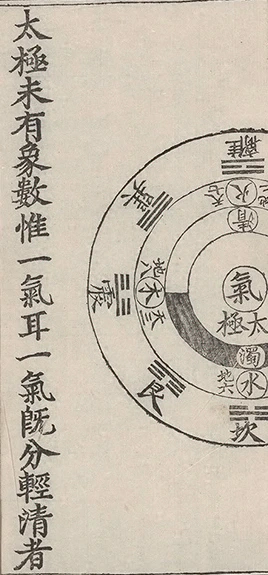 離
地二
火
天七
清
巽
氣
太極
地八
木
天三
震
濁
水
地六
艮
坎
太極未有象數惟一氣耳一氣旣分輕清者